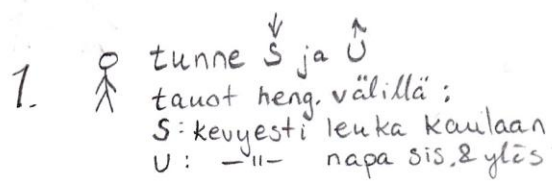 1. tunne S ja U
tauot heng. välillä:
S: kevyesti leuka kaulaan
U: –"– napa sis. & ylös